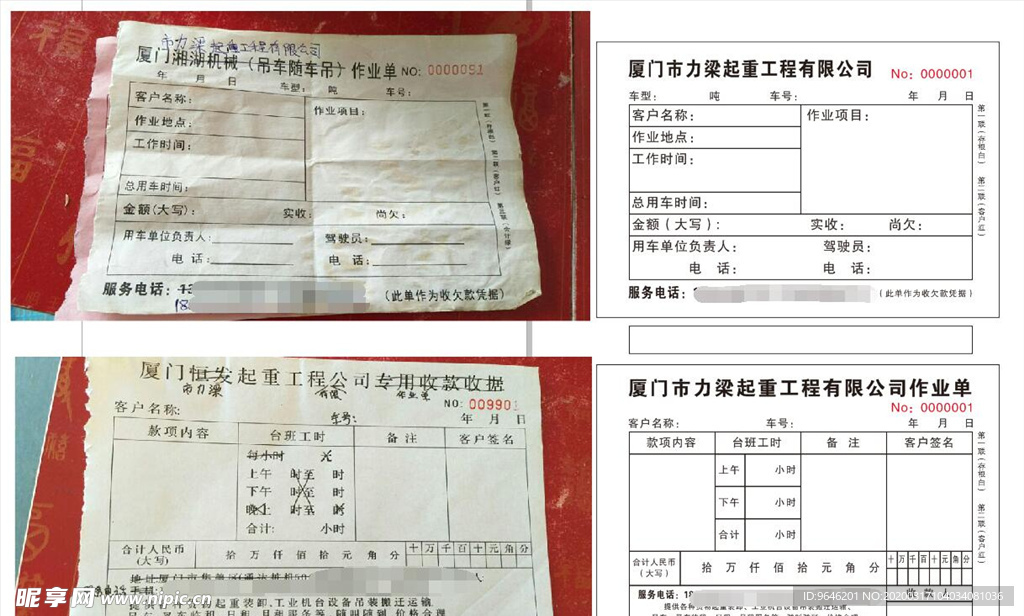 市力梁起重工程有限公司
厦门湘湖机械（吊车随车吊）作业单 NO: 0000051
年 月 日 车型: 吨 车号:
客户名称:
作业项目:
作业地点:
工作时间:
总用车时间:
金额(大写): 实收: 尚欠:
用车单位负责人: 驾驶员:
电 话: 电 话:
服务电话:
(此单作为收欠款凭据)
厦门市力梁起重工程有限公司 No: 0000001
车型: 吨 车号: 年 月 日
客户名称: 作业项目:
作业地点:
工作时间:
总用车时间:
金额（大写）: 实收: 尚欠:
用车单位负责人: 驾驶员:
电 话: 电 话:
服务电话: （此单作为收欠款凭据）
第一联(存根白) 第二联(客户红)
厦门恒发起重工程公司专用收款收据
市力梁 有限 作业单
NO: 009901
客户名称: 车号: 年 月 日
款项内容 台班工时 备 注 客户签名
每小时 元
上午 时至 时
下午 时至 时
晚上 时至 时
合计: 小时
合计人民币(大写) 拾 万 仟 佰 拾 元 角 分 十万千百十元角分
厦门市力梁起重工程有限公司作业单
No: 0000001
客户名称: 车号: 年 月 日
款项内容 台班工时 备 注 客户签名
上午 小时
下午 小时
合计 小时
合计人民币(大写) 拾 万 仟 佰 拾 元 角 分 十万千百十元角分
第一联(存根白) 第二联(客户红)
服务电话: 18
昵享网 www.nipic.cn
ID:9646201 NO:20200517104034081036